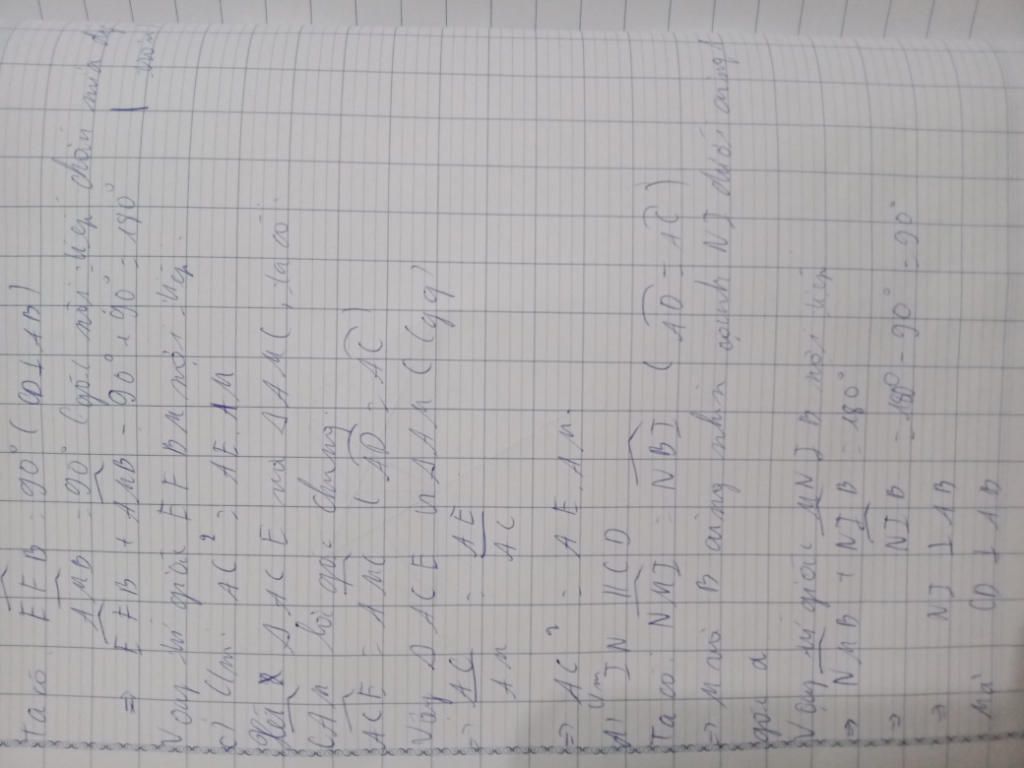 Ta có EFB = 90° ( CD ⊥ AB )
AMB = 90° (góc nội tiếp chắn
⇒ EFB + AMB = 90° + 90° = 180°
Vậy tứ giác EFBM nội tiếp
c) C/m AC² = AE.AM
Xét Δ ACE và Δ AMC , ta có
CAM là góc chung
ACE = AMC ( AD = AC )
Vậy Δ ACE Δ AM C (gg)
⇒ AC / AM = AE / AC
⇒ AC² = AE.AM.
d) C/m IN || CD
Ta có: NMI = NBI ( AD = AC )
⇒ M và B cùng nhìn cạnh NI dưới cùng 1
góc α
Vậy tứ giác MNIB nội tiếp
⇒ NMB + NIB = 180°
⇒ NIB = 180° - 90° = 90°
⇒ NI ⊥ AB
Mà CD ⊥ AB